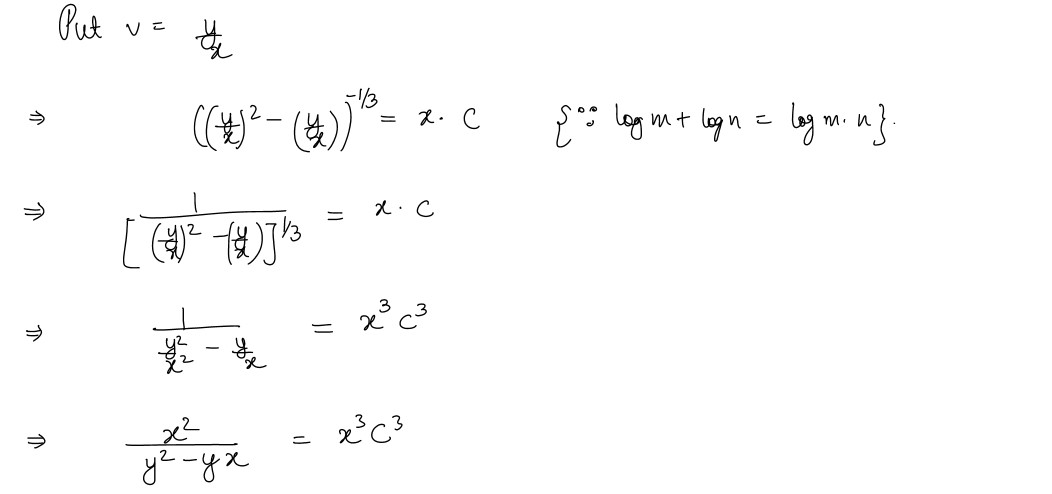 Put v = y/x
⇒ ((y/x)^2 − (y/x))^(−1/3) = x · C {∵ log m + log n = log m · n}.
⇒ 1/[(y/x)^2 − (y/x)]^(1/3) = x · C
⇒ 1/(y^2/x^2 − y/x) = x^3 C^3
⇒ x^2/(y^2 − yx) = x^3 C^3